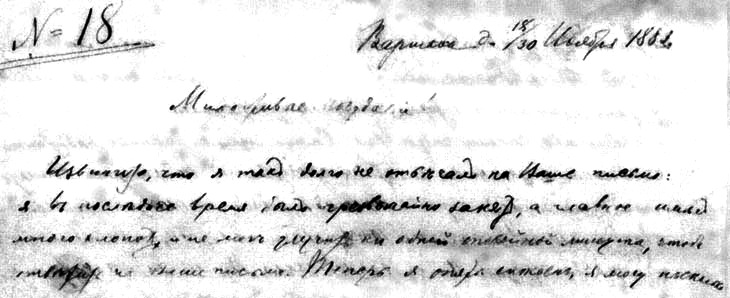 № 18
Варшава д. 18/30 Ноября 1862
Милостивый государь!
Извините, что я такъ долго не отвѣчалъ на Ваше письмо:
я въ послѣднее время былъ чрезвычайно занятъ, а главное имѣлъ
много хлопотъ, и не могъ улучить ни одной спокойной минуты, чтобъ
отвѣтить на Ваше письмо. Теперь я опять спокоенъ, я могу